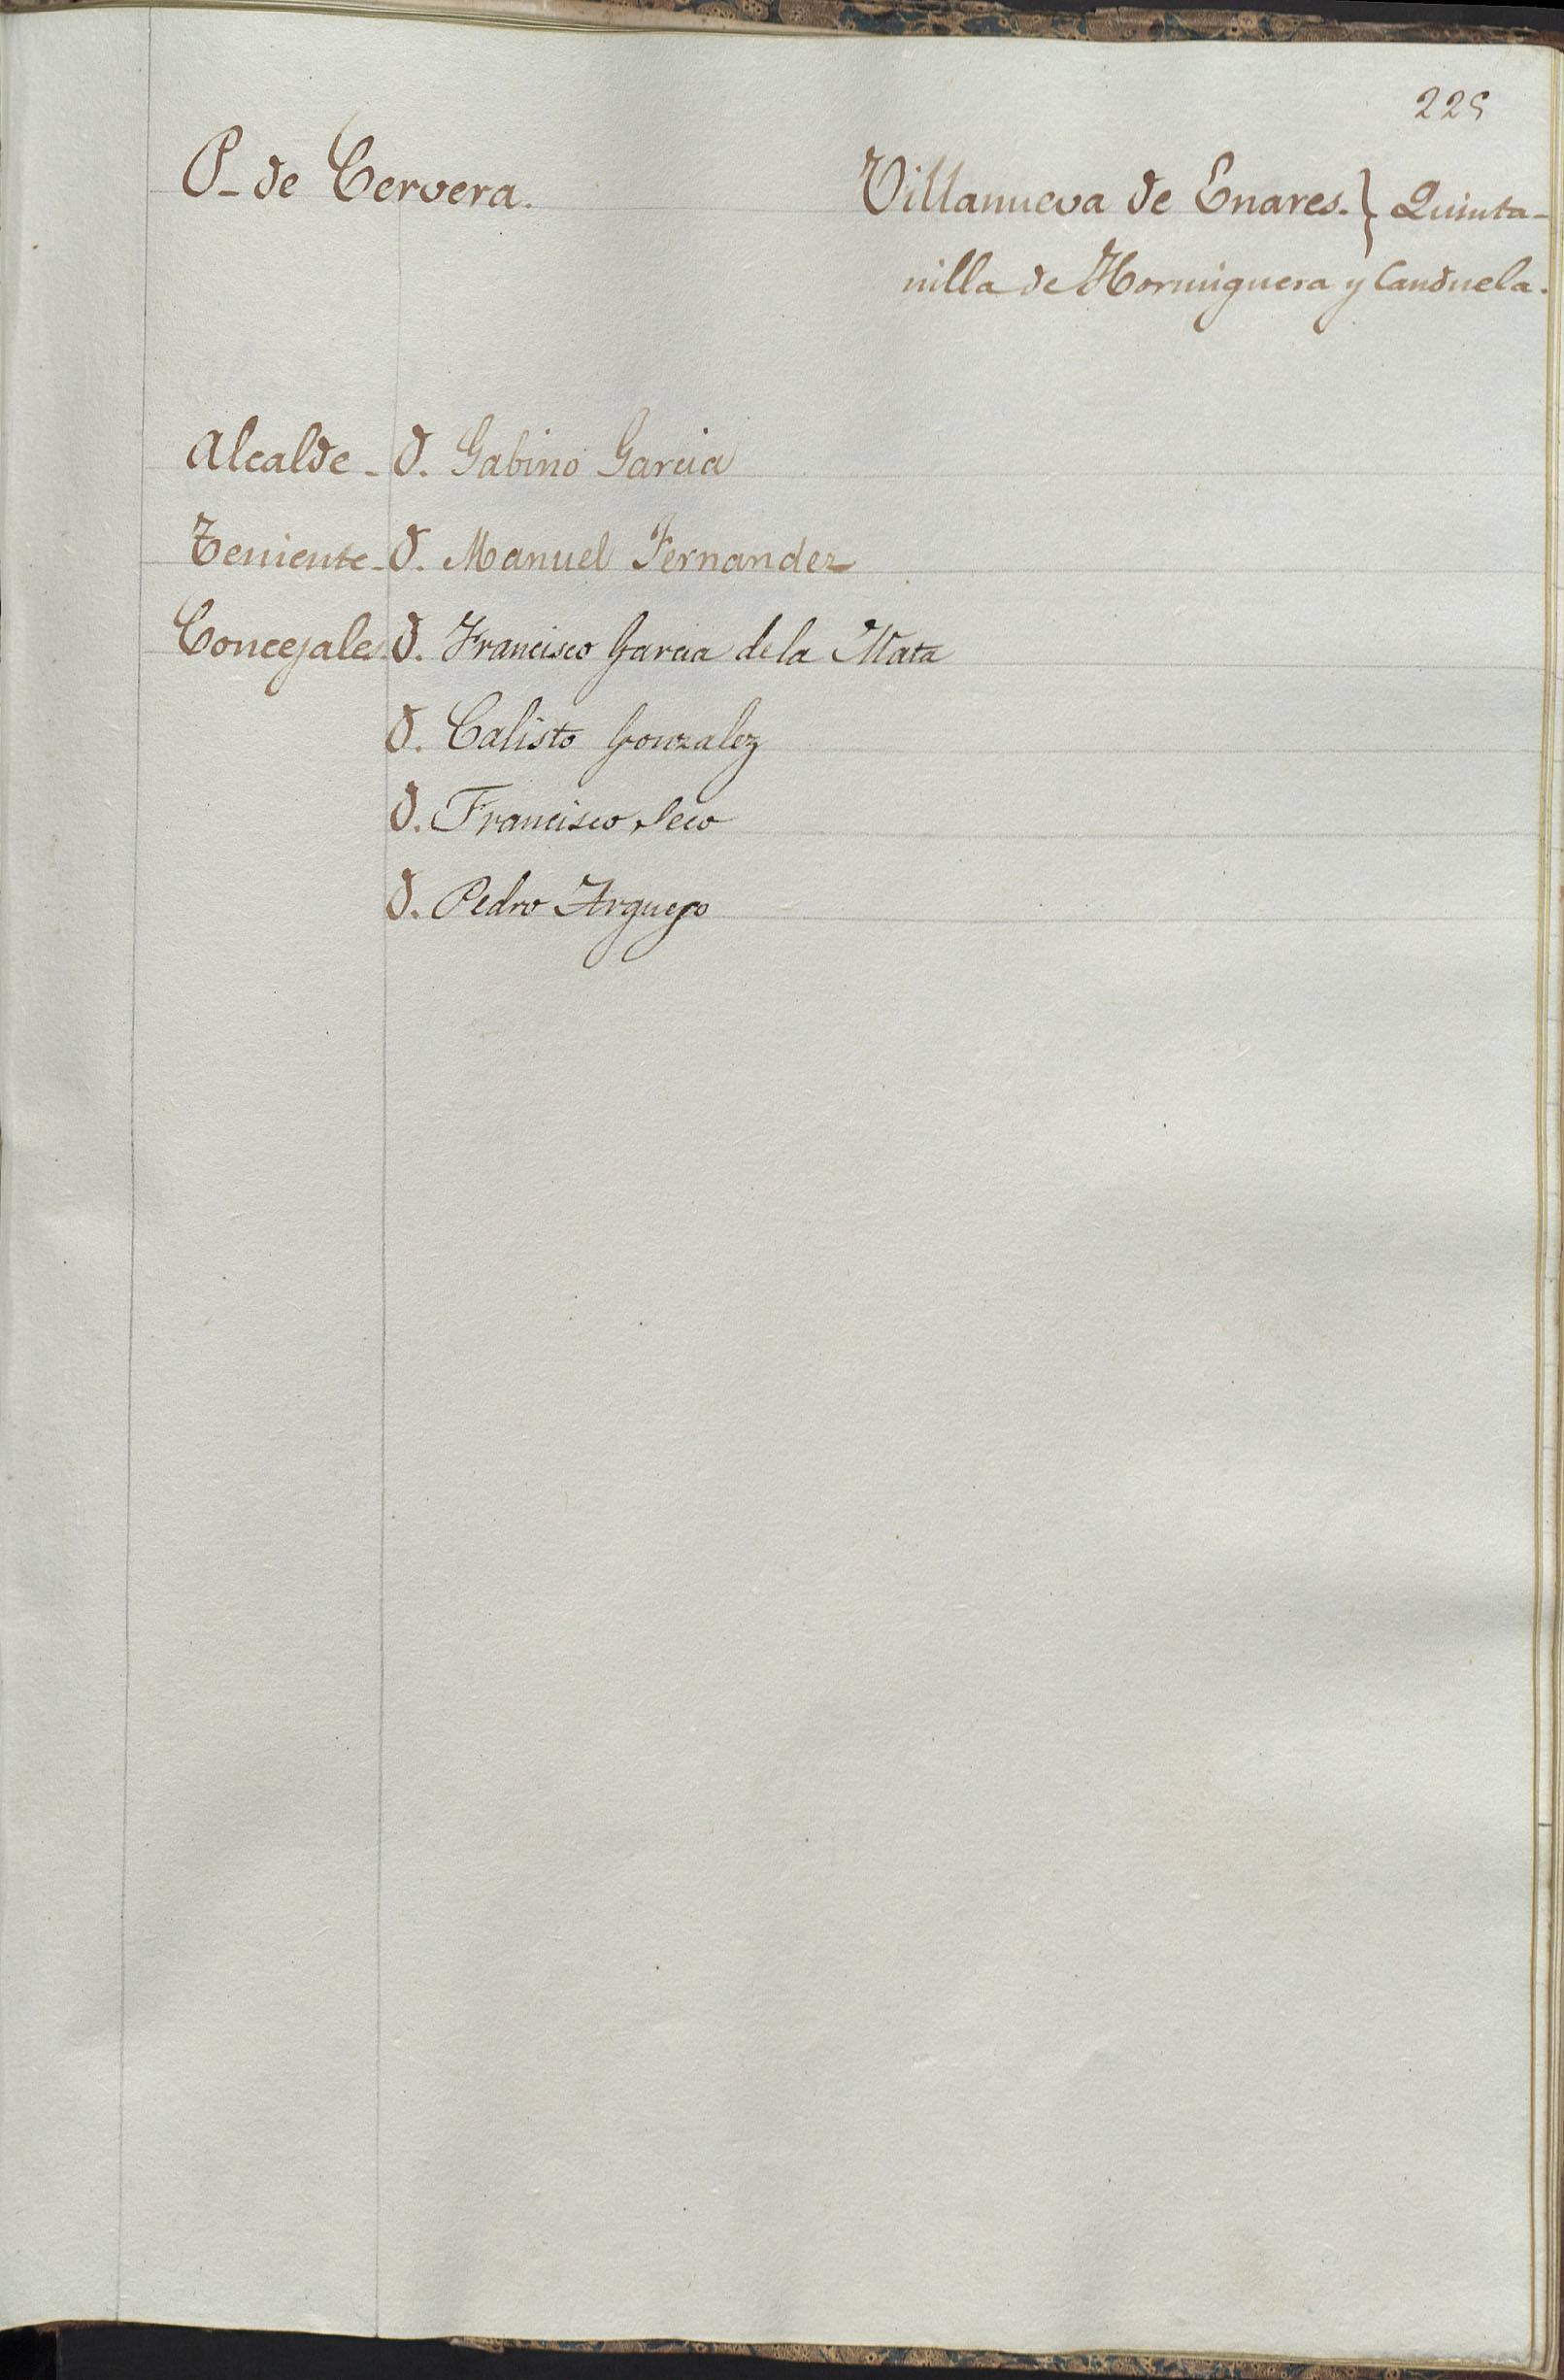 225
P- de Cervera.
Villanueva de Enares.} Quinta-
nilla de Hormiguera y Canduela.
Alcalde - D. Gabino Garcia
Teniente - D. Manuel Fernandez
Concejales D. Francisco Garcia de la Mata
D. Calisto Gonzalez
D. Francisco Seco
D. Pedro Argueso